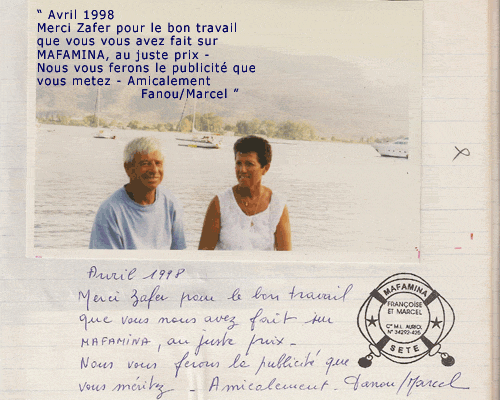 “ Avril 1998
Merci Zafer pour le bon travail
que vous vous avez fait sur
MAFAMINA, au juste prix -
Nous vous ferons le publicité que
vous metez - Amicalement
Fanou/Marcel ”
Avril 1998
Merci Zafer pour le bon travail
que vous nous avez fait sur
MAFAMINA, au juste prix -
Nous vous ferons la publicité que
vous méritez - Amicalement - Fanou/Marcel
MAFAMINA
FRANÇOISE
ET MARCEL
Cᵗ M.L. AURIOL
N° 34292-426
SETE